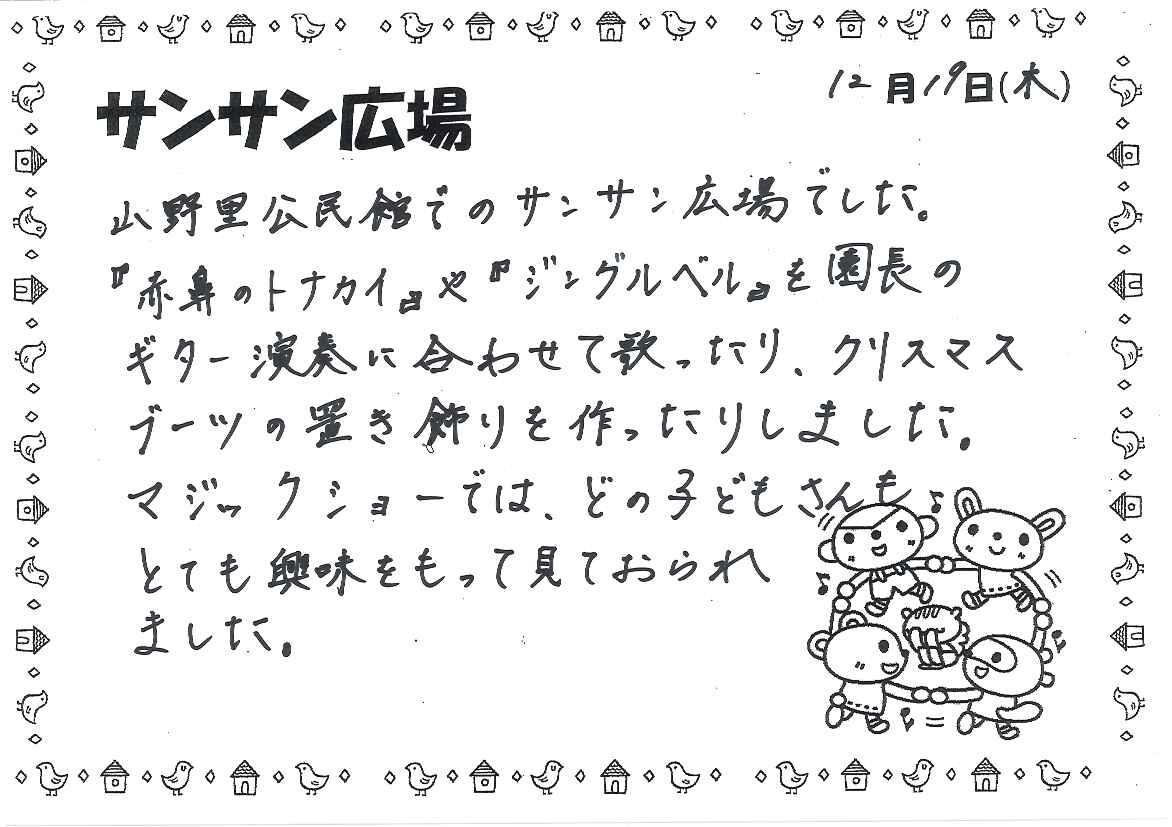 12月19日(木)
サンサン広場
山野里公民館でのサンサン広場でした。
『赤鼻のトナカイ』や『ジングルベル』を園長の
ギター演奏に合わせて歌ったり、クリスマス
ブーツの置き飾りを作ったりしました。
マジックショーでは、どの子どもさんも
とても興味をもって見ておられ
ました。